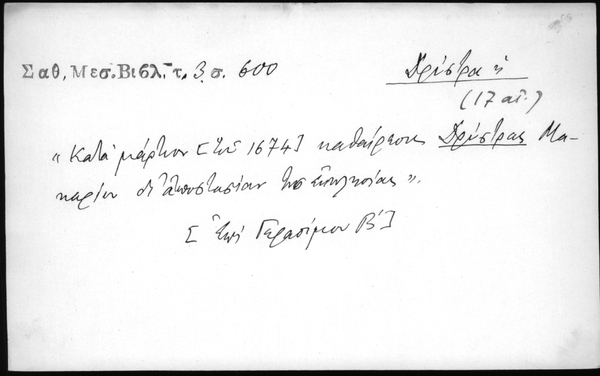 Σαθ. Μεσ. Βιβλ. τ. 3 σ. 600
Δρύστρα ἡ
(17 αἰ.)
« Κατὰ μάρτιον [τοῦ 1674] καθαίρεσις Δρύστρας Μα-
καρίου δι' ἀποστασίαν τῆς ἐκκλησίας ».
[ ἐπὶ Γερασίμου Β′]